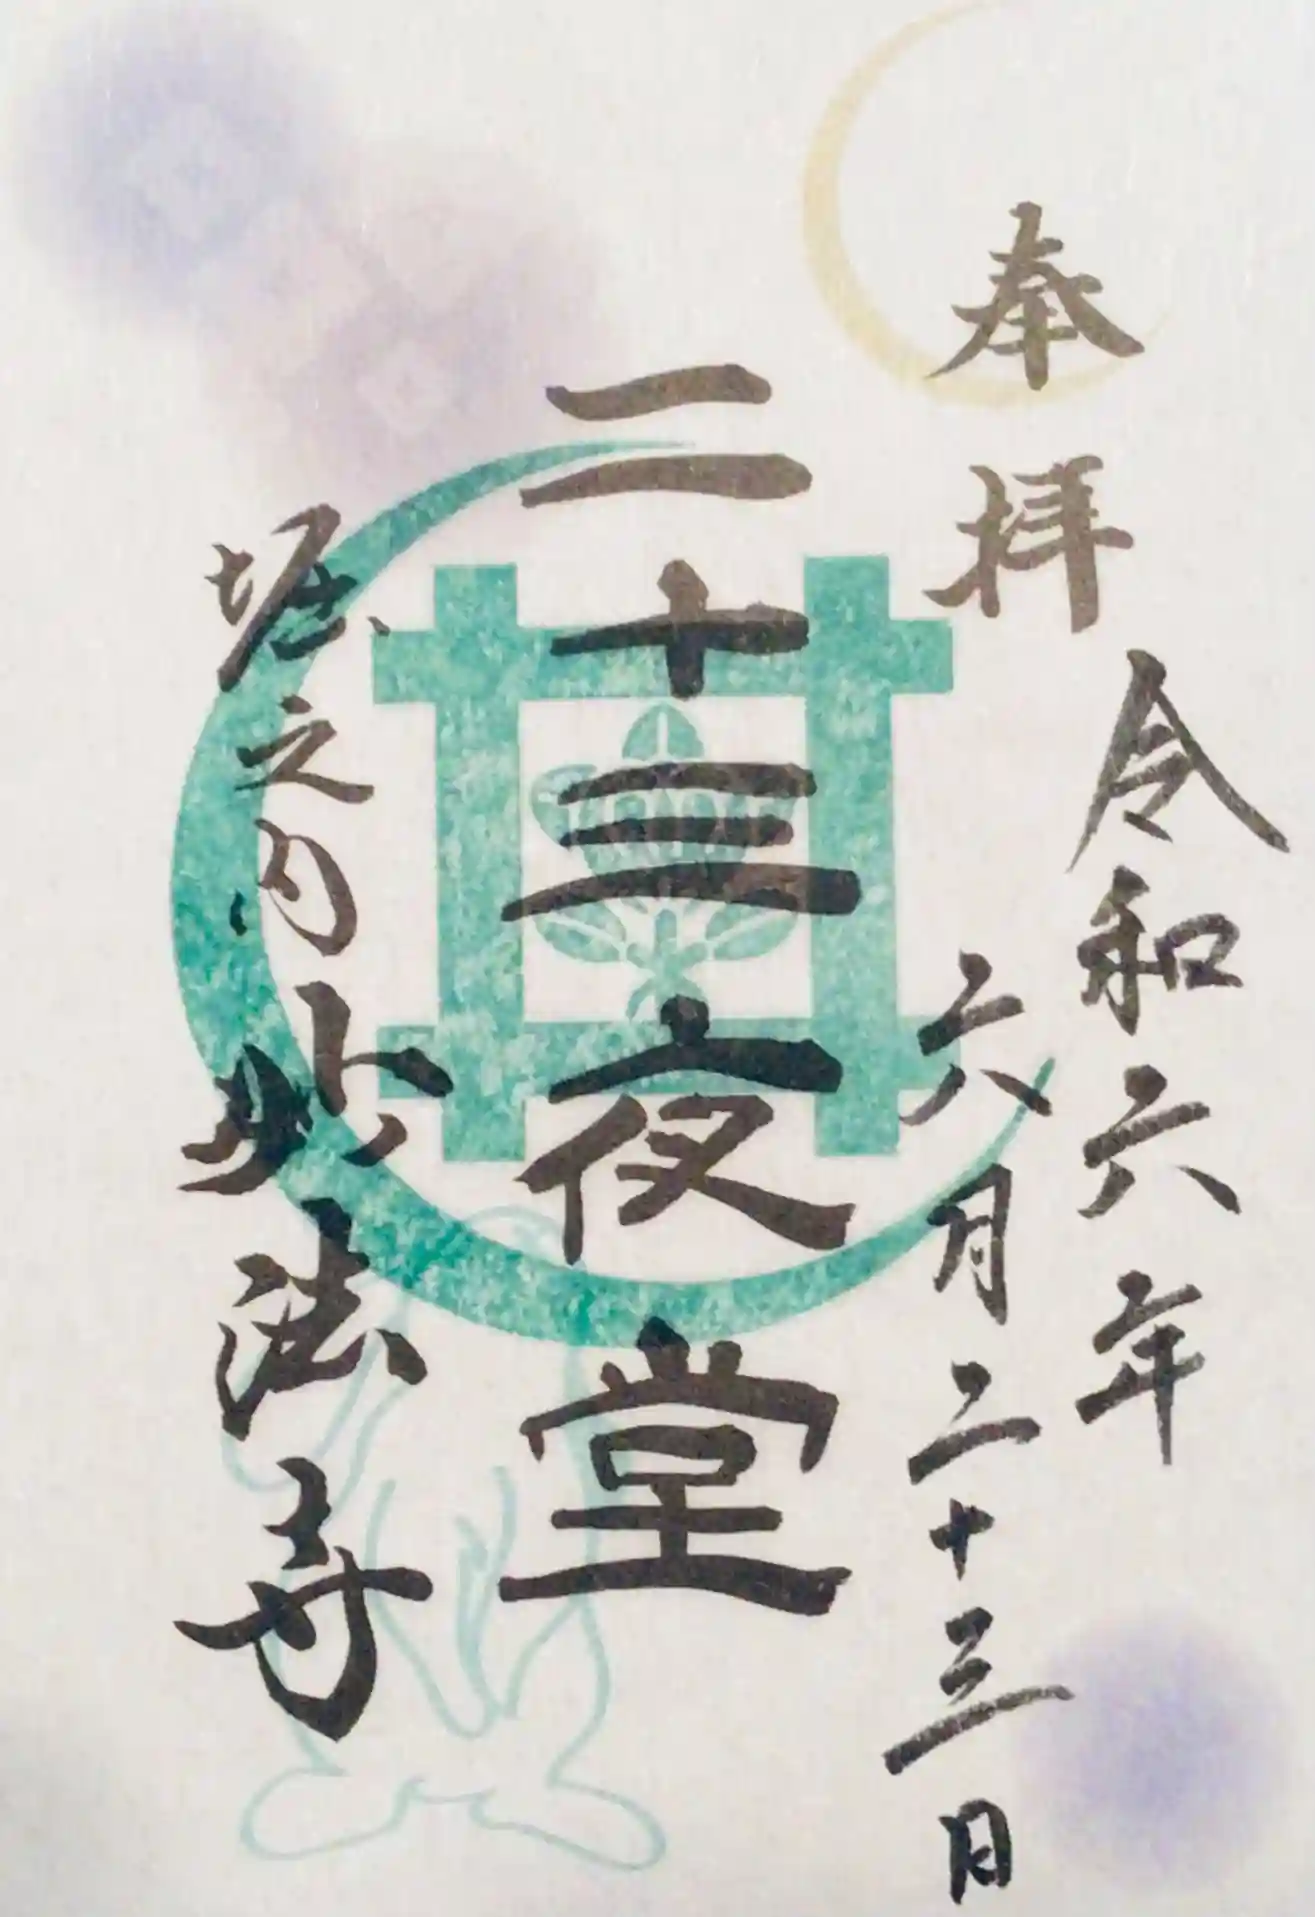 奉拝
令和六年
六月二十三日
二十三夜堂
堀之内妙法寺